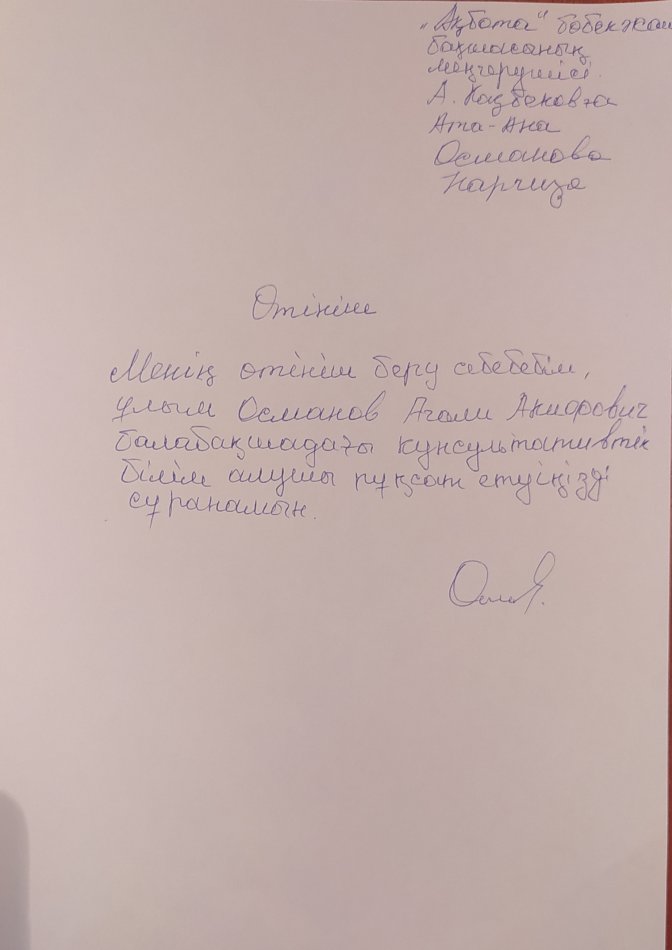 „Ақбота" бөбекжай
бақшасының
меңгерушісі.
А. Казбековаға
Ата-Ана
Османова
Наргиза
Өтініш
Менің өтініш беру себебебім,
ұлым Османов Агали Акифович
балабақшадағы кунсультативтік
білім алушы рұқсат етуіңізді
сұранамын.